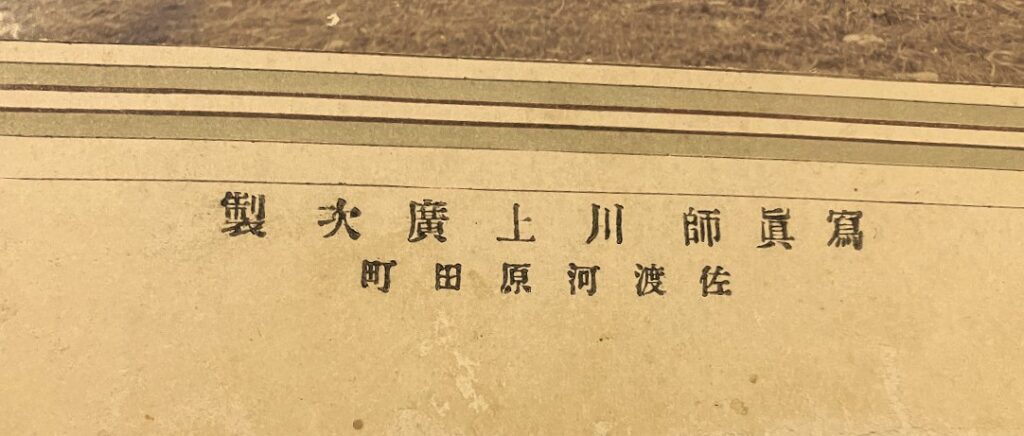 寫眞師川上廣次製
佐渡河原田町